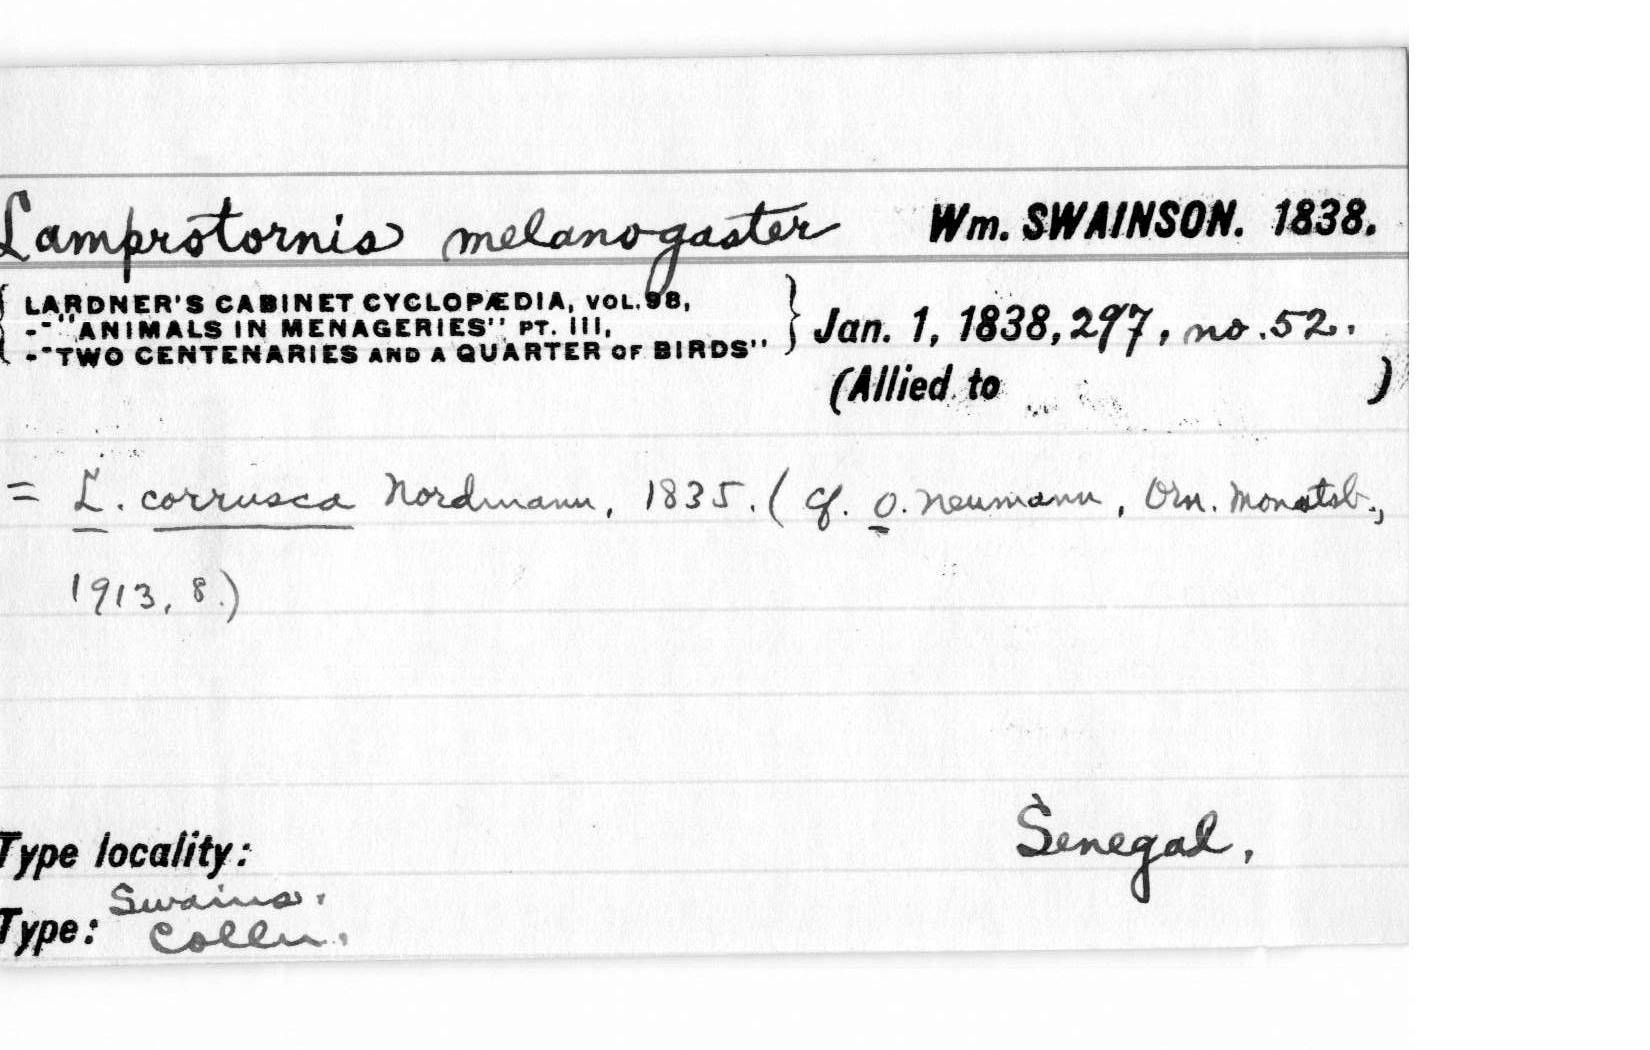 Lamprotornis melanogaster Wm. SWAINSON. 1838.
{ LARDNER'S CABINET CYCLOPÆDIA, VOL. 98, }
-"ANIMALS IN MENAGERIES" PT. III,
-"TWO CENTENARIES AND A QUARTER OF BIRDS"
Jan. 1, 1838, 297, no. 52.
(Allied to )
= L. corrusca Nordmann, 1835. (cf. O. Neumann, Orn. Monatsb.,
1913, 8.)
Type locality: Senegal,
Type: Swains.
Colln.